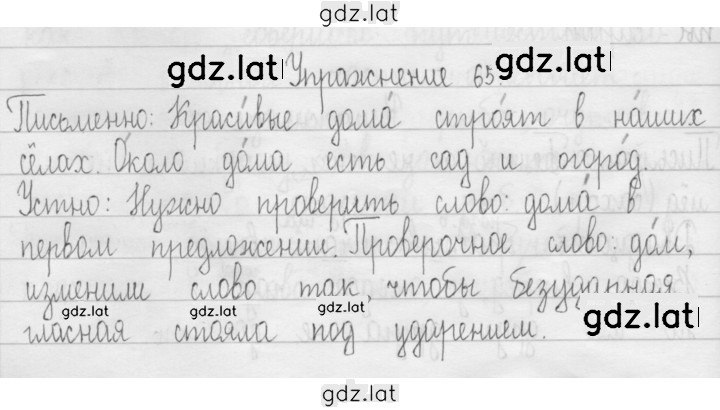 gdz.lat
gdz.lat
Упражнение 65.
Письменно: Краси́вые дома́ стро́ят в на́ших
сёлах. О́коло до́ма есть сад и огоро́д.
Устно: Нужно проверить слово: дома́ в
первом предложении. Проверочное слово: до́м,
изменили слово так, чтобы безударная
gdz.lat gdz.lat gdz.lat
гласная стаяла под ударением.
gdz.lat
gdz.lat